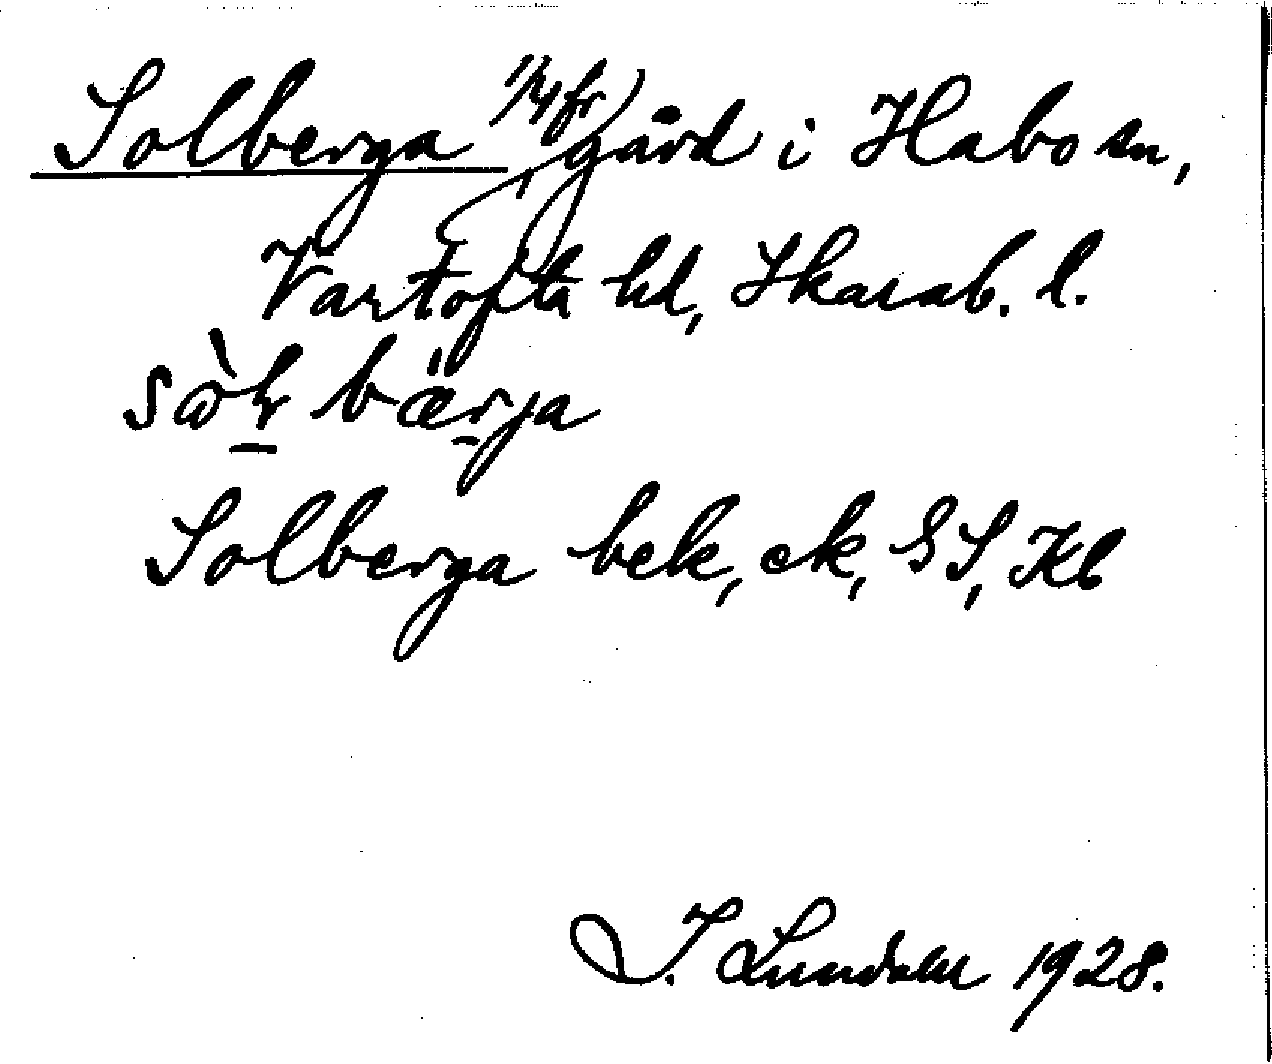 Solberga 1/4 fr gård i Habo sn,
Vartofta hd, Skarab. l.
bærja
Solberga bek, ek, GS, Kb
I. Lundahl 1928.